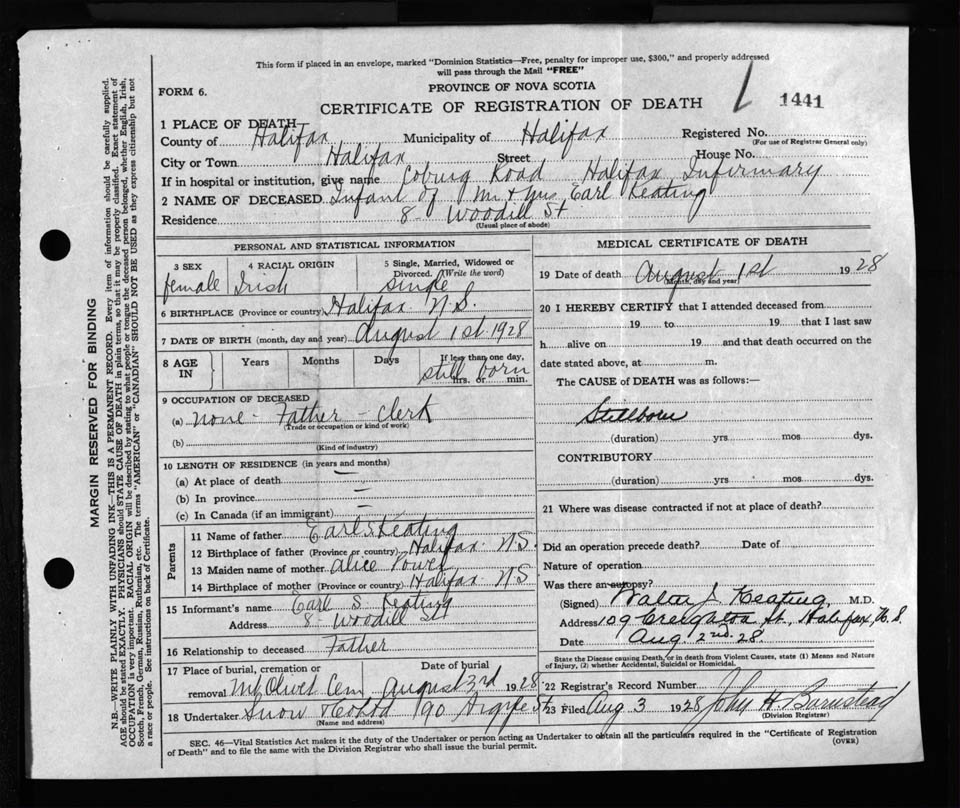 This form if placed in an envelope, marked "Dominion Statistics—Free, penalty for improper use, $300," and properly addressed
will pass through the Mail "FREE"
FORM 6.
PROVINCE OF NOVA SCOTIA
CERTIFICATE OF REGISTRATION OF DEATH
1441
1 PLACE OF DEATH
County of Halifax Municipality of Halifax Registered No.
(For use of Registrar General only)
City or Town Halifax Street House No.
If in hospital or institution, give name Coburg Road Halifax Infirmary
2 NAME OF DECEASED Infant of Mr & Mrs Earl Keating
Residence 8 Woodill St
(Usual place of abode)
PERSONAL AND STATISTICAL INFORMATION
3 SEX 4 RACIAL ORIGIN 5 Single, Married, Widowed or
Divorced. (Write the word)
female Irish single
6 BIRTHPLACE (Province or country) Halifax N.S.
7 DATE OF BIRTH (month, day and year) August 1st 1928
8 AGE IN Years Months Days If less than one day,
still born
hrs. or min.
9 OCCUPATION OF DECEASED
(a) none - Father - Clerk
(Trade or occupation or kind of work)
(b)
(Kind of industry)
10 LENGTH OF RESIDENCE (in years and months)
(a) At place of death
(b) In province
(c) In Canada (if an immigrant)
Parents
11 Name of father Earl S Keating
12 Birthplace of father (Province or country) Halifax N.S.
13 Maiden name of mother Alice Power
14 Birthplace of mother (Province or country) Halifax N S
15 Informant's name Earl S. Keating
Address 8 Woodill St
16 Relationship to deceased Father
17 Place of burial, cremation or Date of burial
removal Mt Olivet Cem August 3rd 1928
18 Undertaker Snow & Co Ltd 90 Argyle St
(Name and address)
MEDICAL CERTIFICATE OF DEATH
19 Date of death August 1st 1928
(Month, day and year)
20 I HEREBY CERTIFY that I attended deceased from
19 to 19 that I last saw
h alive on 19 and that death occurred on the
date stated above, at m.
The CAUSE of DEATH was as follows:
Stillborn
(duration) yrs mos dys.
CONTRIBUTORY
(duration) yrs mos dys.
21 Where was disease contracted if not at place of death?
Did an operation precede death? Date of
Nature of operation
Was there an autopsy?
(Signed) Walter J. Keating, M.D.
Address 109 St., Halifax, N.S.
Date Aug 2nd 28.
State the Disease causing Death, or in death from Violent Causes, state (1) Means and Nature
of Injury, (2) whether Accidental, Suicidal or Homicidal.
22 Registrar's Record Number
23 Filed Aug 3 1928 John H Barnstead
(Division Registrar)
SEC. 46—Vital Statistics Act makes it the duty of the Undertaker or person acting as Undertaker to obtain all the particulars required in the "Certificate of Registration
of Death" and to file the same with the Division Registrar who shall issue the burial permit.
(OVER)
MARGIN RESERVED FOR BINDING
N.B.—WRITE PLAINLY WITH UNFADING INK—THIS IS A PERMANENT RECORD. Every item of information should be carefully supplied.
AGE should be stated EXACTLY. PHYSICIANS should STATE CAUSE OF DEATH in plain terms, so that it may be properly classified. Exact statement of
OCCUPATION is very important. RACIAL ORIGIN will be described by stating to what people or tongue the deceased person belonged, whether English, Irish,
Scotch, French, German, Russian, Ruthenian, etc. The terms "AMERICAN" or "CANADIAN" SHOULD NOT BE USED as they express citizenship but not
a race or people. See instructions on back of Certificate.